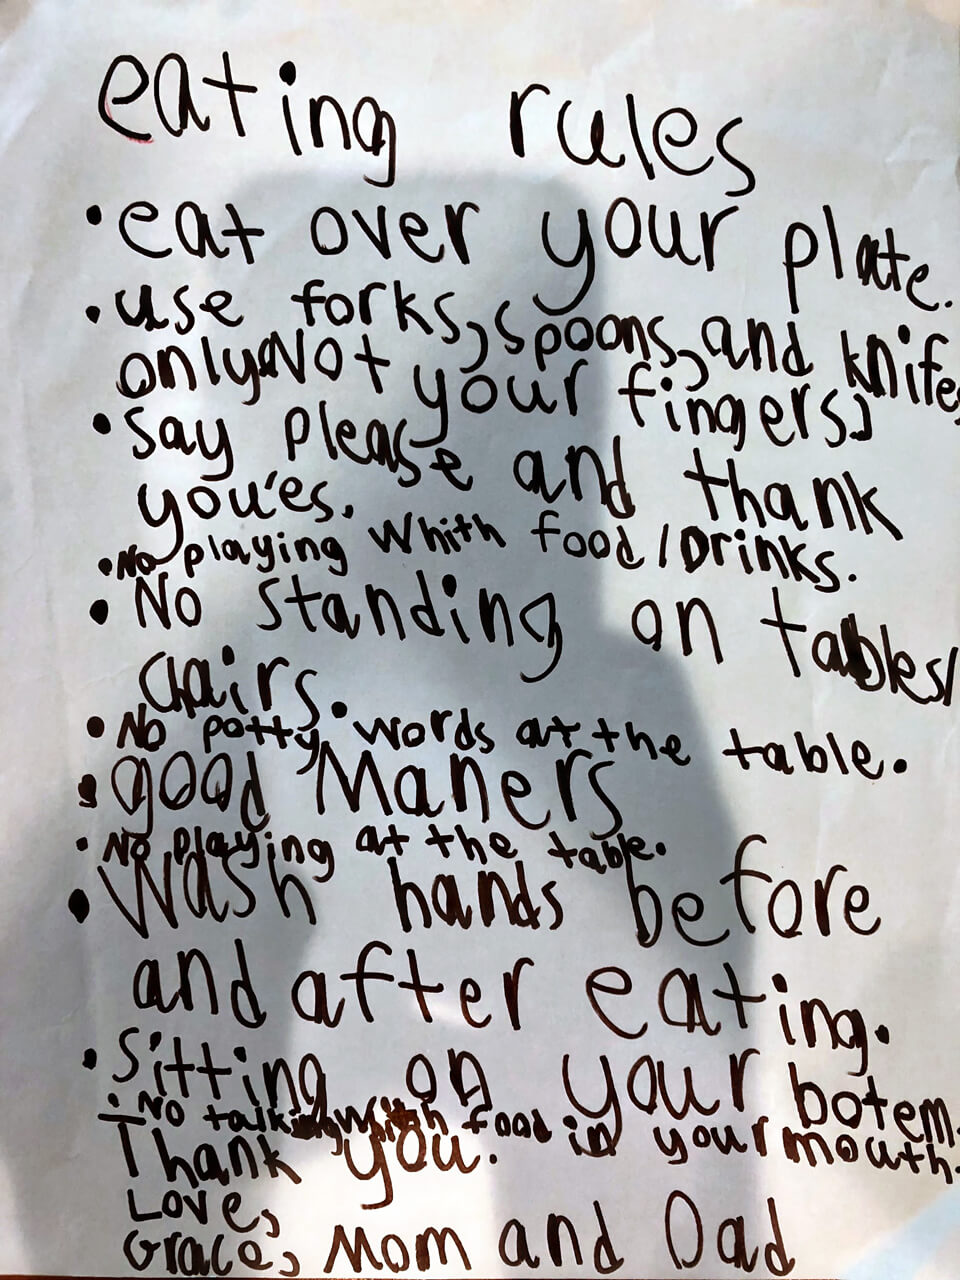 eating rules
• eat over your plate.
• use forks, spoons, and knife
only Not your fingers.
• say please and thank
you'es.
• No playing Whith food / Drinks.
• No standing on tables/
chairs.
• No potty words at the table.
• good Maners
• No playing at the table.
• Wash hands before
and after eating.
• Sitting on your botem.
• No talking with food in your mouth.
Thank you.
Love,
Grace, Mom and Dad